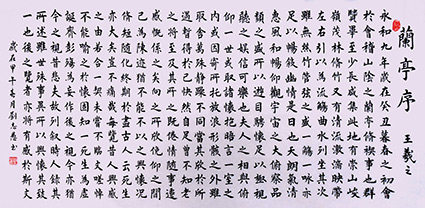 蘭亭序 王羲之
永和九年歲在癸丑暮春之初會
於會稽山陰之蘭亭脩稧事也群
賢畢至少長咸集此地有崇山峻
嶺茂林脩竹又有清流激湍映帶
左右引以為流觴曲水列坐其次
雖無絲竹管弦之盛一觴一詠亦
足以暢敘幽情是日也天朗氣清
惠風和暢仰觀宇宙之大俯察品
類之盛所以遊目騁懷足以極視
聽之娛信可樂也夫人之相與俯
仰一世或取諸懷抱晤言一室之
內或因寄所托放浪形骸之外雖
取舍萬殊靜躁不同當其欣於所
遇暫得於己快然自足曾不知老
之將至及其所之既倦情隨事遷
感慨係之矣向之所欣俛仰之間
已為陳迹猶不能不以之興懷況
脩短隨化終期於盡古人云死生
亦大矣豈不痛哉每覽昔人興感
之由若合一契未嘗不臨文嗟悼
不能喻之於懷固知一死生為虛
誕齊彭殤為妄作後之視今亦猶
今之視昔悲夫故列敘時人錄其
所述雖世殊事異所以興懷其致
一也後之覽者亦將有感於斯文
歲在甲午 月劉志 書